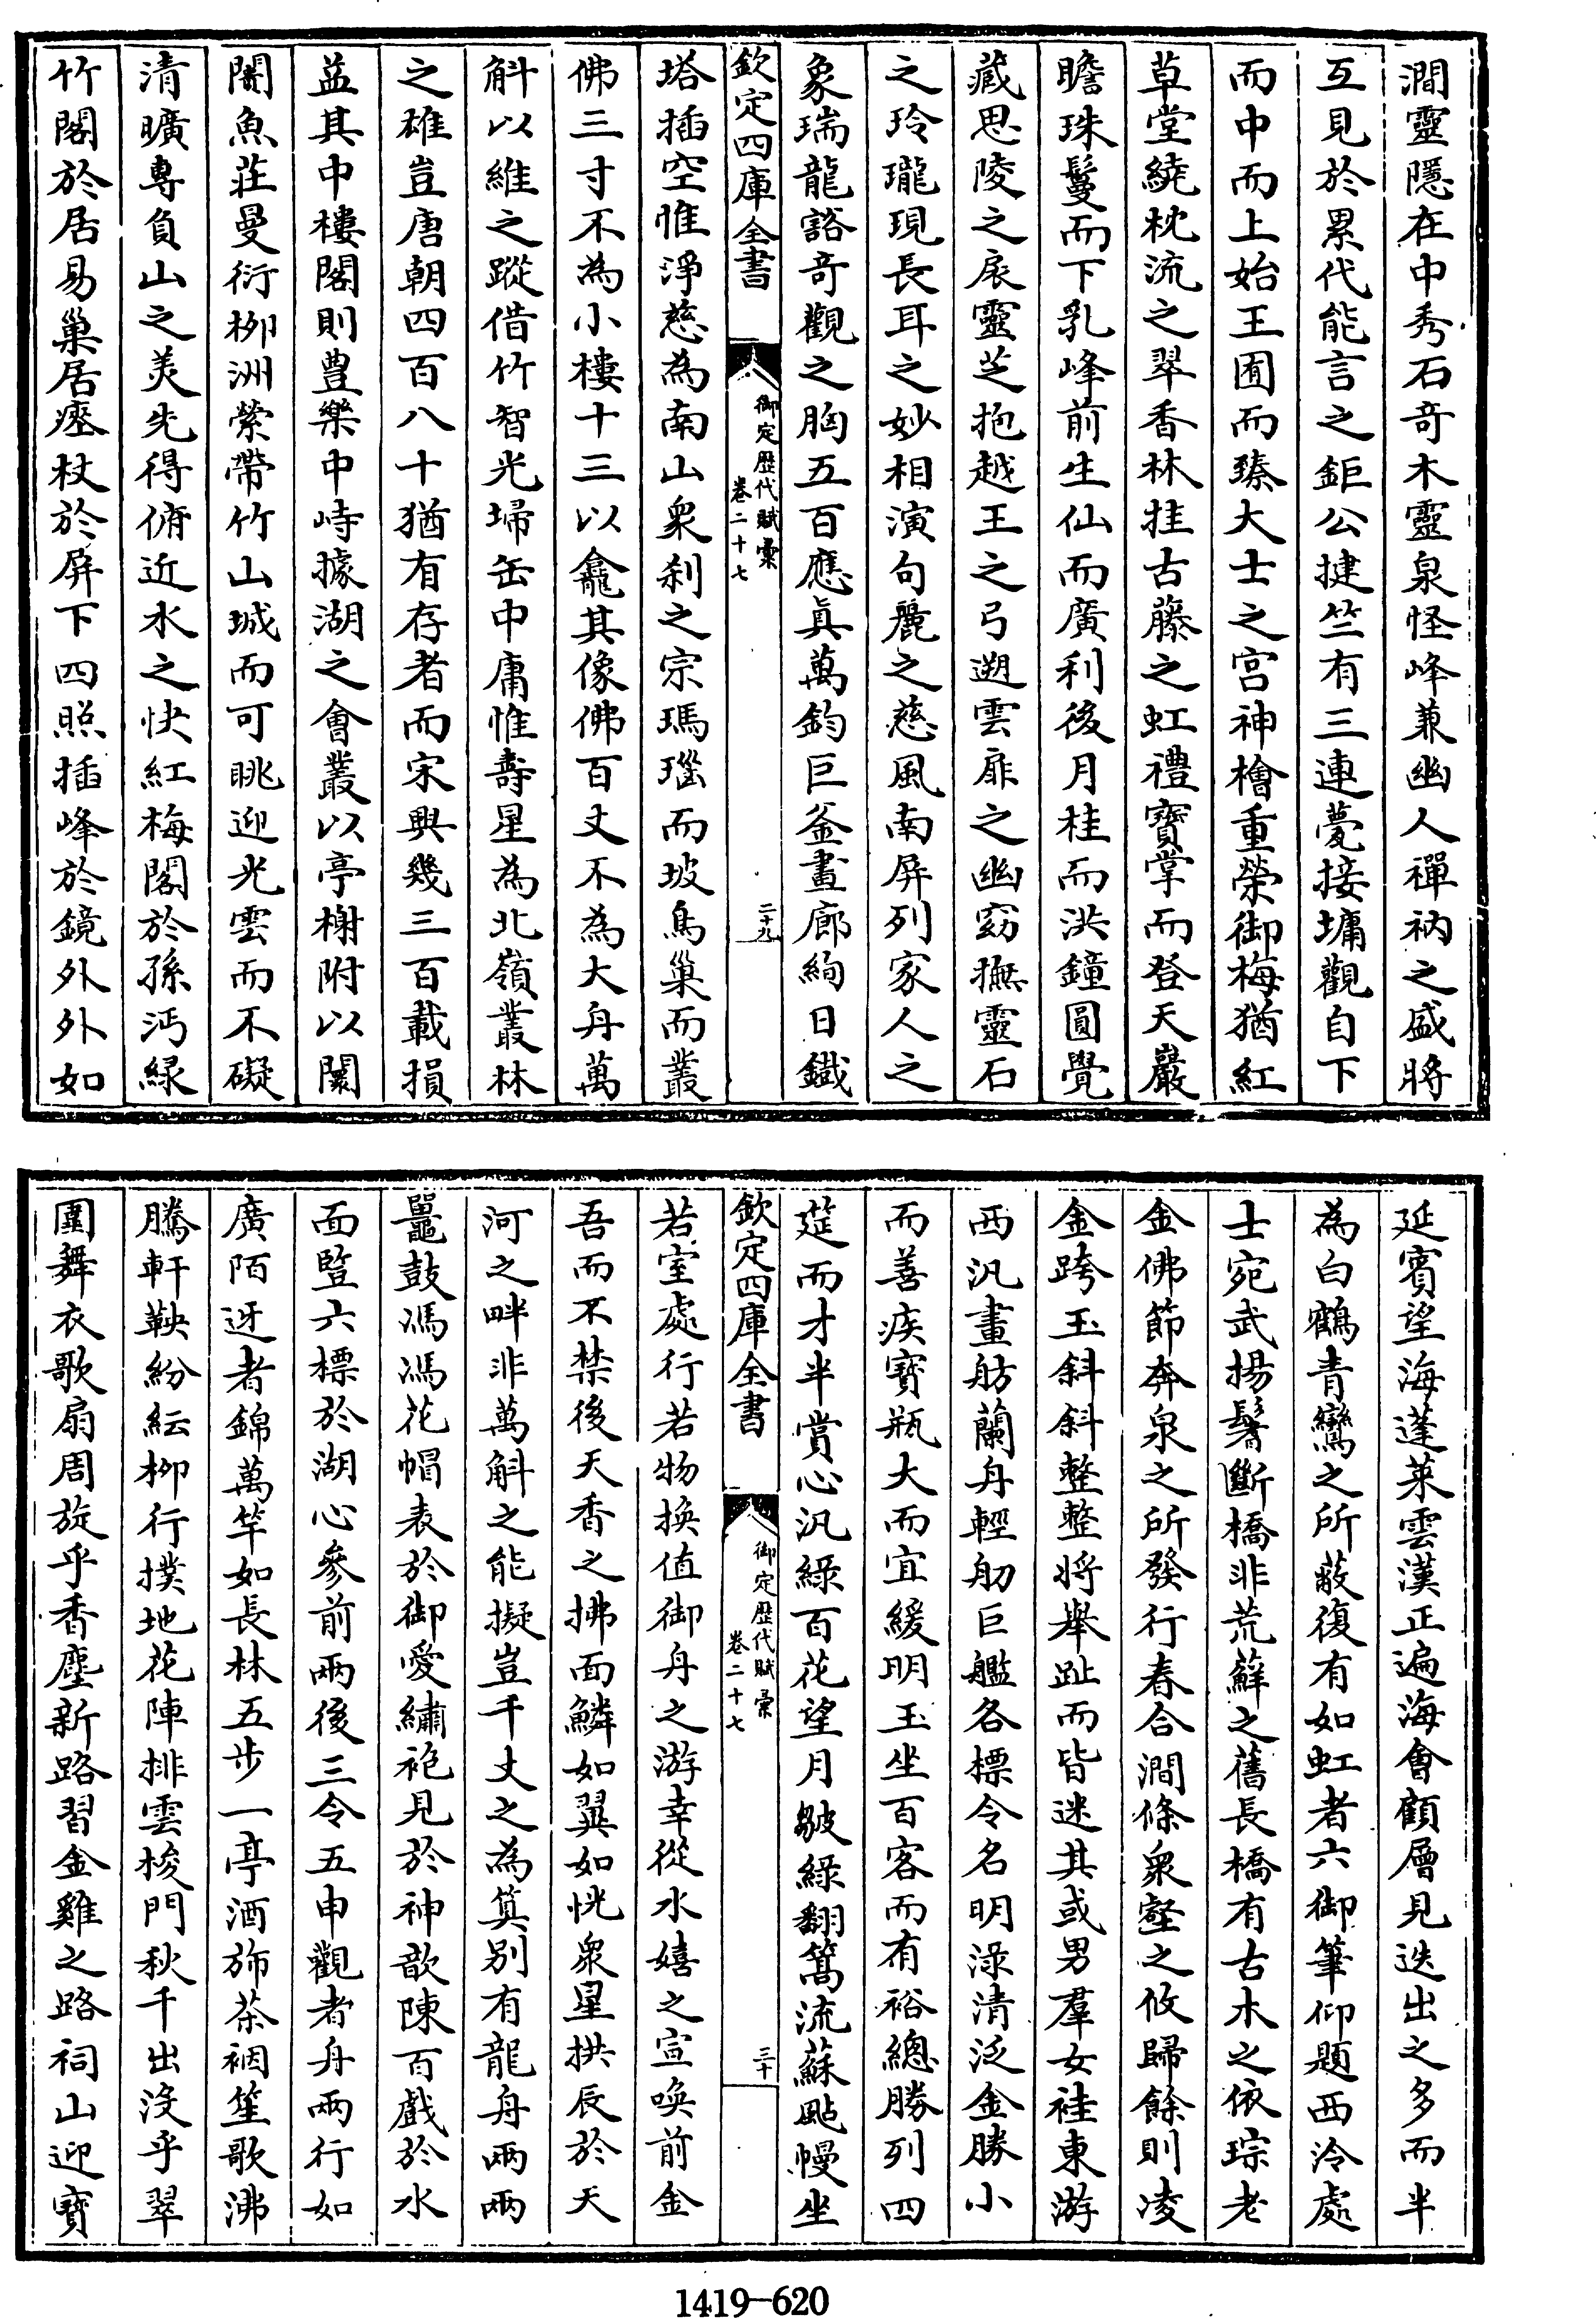 澗靈隱在中秀石奇木靈泉怪峰兼幽人禪衲之盛將
互見於累代能言之鉅公捷竺有三連甍接墉觀自下
而中而上始王囿而臻大士之宫神檜重榮御梅猶紅
草堂繞枕流之翠香林挂古藤之虹禮寶掌而登天巖
瞻珠鬘而下乳峰前生仙而廣利後月桂而洪鐘圓覺
藏思陵之扆靈芝抱越王之弓遡雲扉之幽窈撫靈石
之玲瓏現長耳之妙相演句麗之慈風南屏列家人之
象瑞龍谽奇觀之胸五百應真萬鈞巨釜畫廊絢日鐡
欽定四庫全書
御定歴代賦彙
卷二十七
二十九
塔插空惟淨慈為南山衆刹之宗瑪瑙而坡鳥巢而叢
佛三寸不為小樓十三以龕其像佛百丈不為大舟萬
斛以維之蹤借竹智光埽缶中庸惟壽星為北嶺叢林
之雄豈唐朝四百八十猶有存者而宋興幾三百載損
益其中樓閣則豊樂中峙據湖之會叢以亭榭附以闤
闠魚莊曼衍栁洲縈帶竹山城而可眺迎光雲而不礙
清曠專負山之美先得俯近水之快紅梅閣於孫沔緑
竹閣於居易巢居瘞杖於屏下四照插峰於鏡外外如
延賓望海蓬萊雲漢正遍海會顧層見迭出之多而半
為白鶴青鸞之所蔽復有如虹者六御筆仰題西泠處
士宛武揚鬐斷橋非荒蘚之舊長橋有古木之依琮老
金佛節奔泉之所發行春合澗條衆壑之攸歸餘則凌
金跨玉斜斜整整將舉趾而皆迷其或男羣女袿東游
西汎畫舫蘭舟輕舠巨艦各標令名明渌清泛金勝小
而善疾寳瓶大而宜緩明玉坐百客而有裕總勝列四
筵而才半賞心汎綠百花望月皺綠翻篙流蘇颭幔坐
欽定四庫全書
御定歴代賦彙
卷二十七
三十
若室處行若物换值御舟之游幸從水嬉之宣喚前金
吾而不禁後天香之拂面鱗如翼如恍衆星拱辰於天
河之畔非萬斛之能擬豈千丈之為筭别有龍舟兩兩
鼉鼓馮馮花帽表於御愛繡袍見於神歆陳百戲於水
面豎六標於湖心參前兩後三令五申觀者舟兩行如
廣陌迓者錦萬竿如長林五步一亭酒斾茶裀笙歌沸
騰軒鞅紛紜栁行撲地花陣排雲梭門秋千出没乎翠
圍舞衣歌扇周旋乎香塵新路習金雞之路祠山迎寶
1419—620